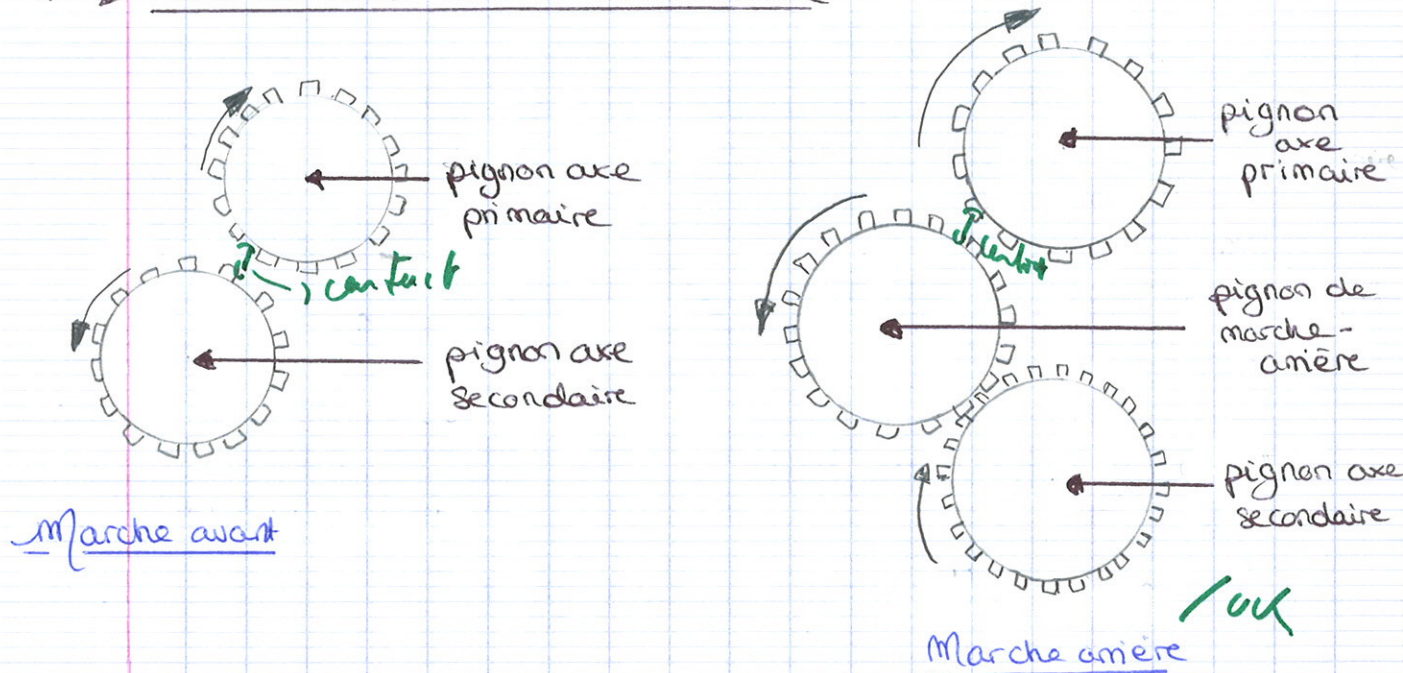 pignon axe
primaire
contact
pignon axe
secondaire
Marche avant
pignon
axe
primaire
contact
pignon de
marche-
arrière
pignon axe
secondaire
Marche arrière